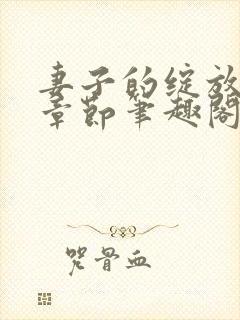 妻子的绽放
章节笔趣阁
咒骨血